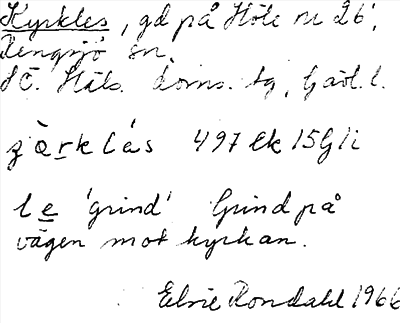 Kyrkles, gd på Höle nr 26,
Rengsjö sn,
SÖ. Häls. doms. tg, Gävl. l.
497 Ek 15G1i
le 'grind' Grind på
vägen mot kyrkan.
Elsie Rondahl 1966